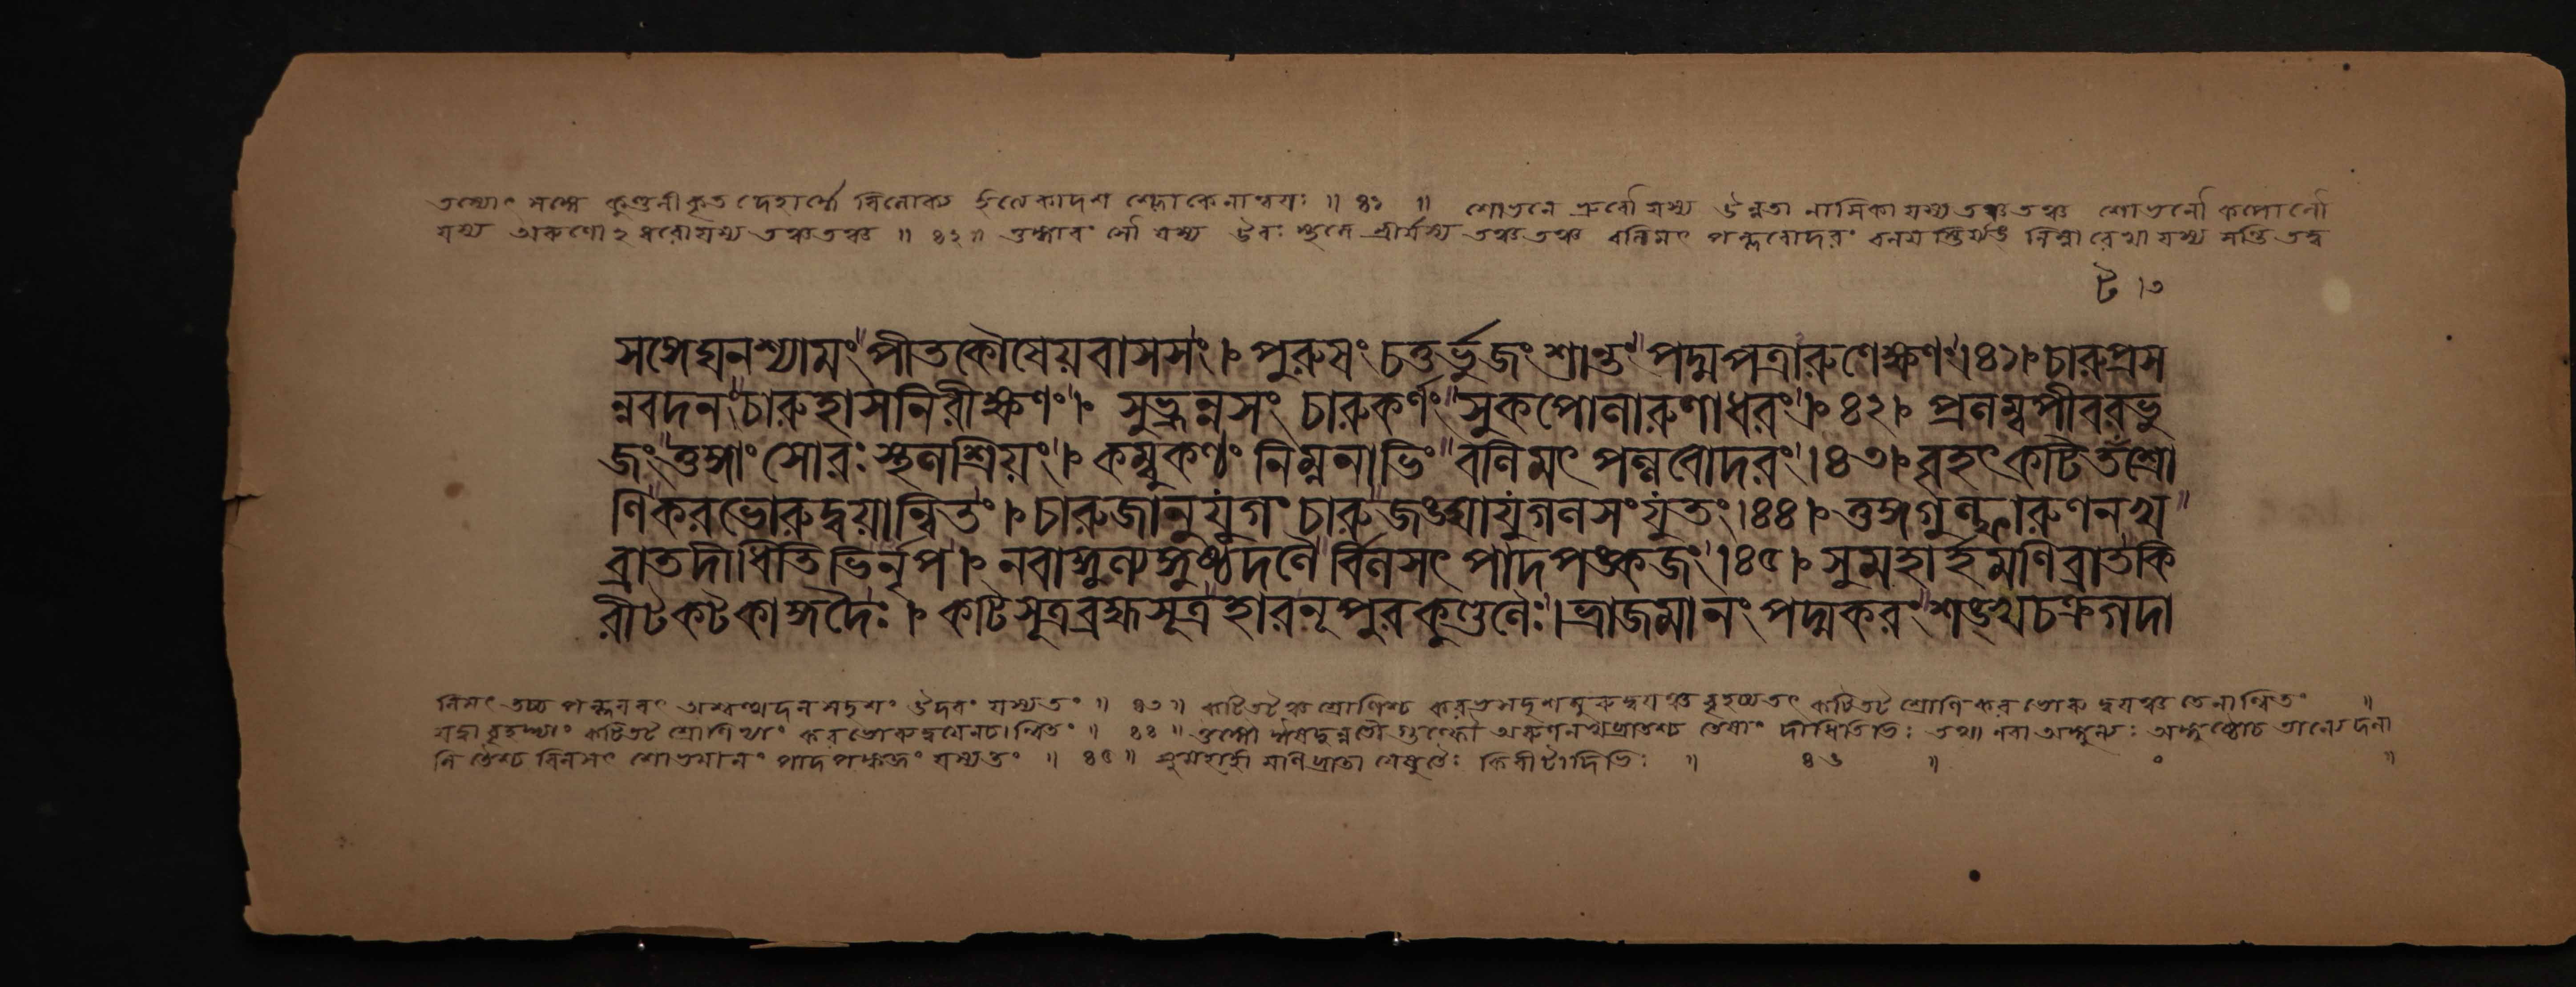 তস্যোৎসঙ্গে কুণ্ডলীকৃত দেহার্দ্ধে বিলোক্য ইত্যেকাদশ শ্লোকেনান্বয়ঃ ॥ ৪১ ॥ শোভনে ভ্রুবৌ যস্য উন্নতা নাসিকা যস্য তঞ্চ তঞ্চ শোভনৌ কপোলৌ
যস্য অরুণোঽধরো যস্য তঞ্চ তঞ্চ ॥ ৪২ ॥ তুঙ্গাবংসৌ যস্য উরঃ স্থলে শ্রীর্যস্য তঞ্চ তঞ্চ বলিমৎ পল্লবোদরং নিম্না রেখা যস্য সন্তি তদ্ব
ঢৈ ।৩
সঙ্গেঘনশ্যামং পীতকৌষেয়বাসসং । পুরুষং চতুর্ভুজং শান্তং পদ্মপত্রারুণেক্ষণং ।৪১। চারুপ্রস
ন্নবদনং চারুহাসনিরীক্ষণং । সুভ্রূন্নসং চারুকর্ণং সুকপোলারুণাধরং । ৪২। প্রলম্বপীবরভু
জং তুঙ্গাংসোরঃস্থলশ্রিয়ং । কম্বুকণ্ঠং নিম্ননাভিং বলিমৎ পল্লবোদরং ।৪৩। বৃহৎকটিতটশ্রো
ণিকরভোরুদ্বয়ান্বিতং । চারুজানুযুগং চারুজঙ্ঘাযুগলসংযুতং ।৪৪। তুঙ্গগুল্ফারুণনখ
ব্রাতদীধিতিভির্নৃপ । নবাঙ্গুল্যঙ্গুষ্ঠদলৈর্বিলসৎ পাদপঙ্কজং ।৪৫। সুমহার্হমণিব্রাতকি
রীটকটকাঙ্গদৈঃ । কটিসূত্রব্রহ্মসূত্র হারনূপুরকুণ্ডলৈঃ। ভ্রাজমানং পদ্মকরং শঙ্খচক্রগদা
লিমৎ তচ্চ পল্লববৎ অশ্বত্থদলসদৃশং উদরং যস্য তং ॥ ৪৩ ॥ কটিতটঞ্চ শ্রোণিশ্চ করভসদৃশমুরুদ্বয়ঞ্চ বৃহচ্চ তৎ কটিতট শ্রোণিকরভোরুদ্বয়ঞ্চ তেনান্বিতং ॥
যদ্বা বৃহদ্ভ্যাং কটিতট শ্রোণিভ্যাং করভোরুদ্বয়েন চান্বিতং ॥ ৪৪ ॥ তুঙ্গৌ গুল্ফৌ অরুণনখব্রাতশ্চ তেষাং দীধিতিভিঃ তথা নবা অঙ্গুল্যঃ অঙ্গুষ্ঠৌ চ তান্যেব দলা
নি তৈশ্চ বিলসৎ শোভমানং পাদপঙ্কজং যস্য তং ॥ ৪৫ ॥ সুমহার্হা মণিব্রাতা যেষু তৈঃ কিরীটাদিভিঃ ॥ ৪৬ ॥ ০ ॥